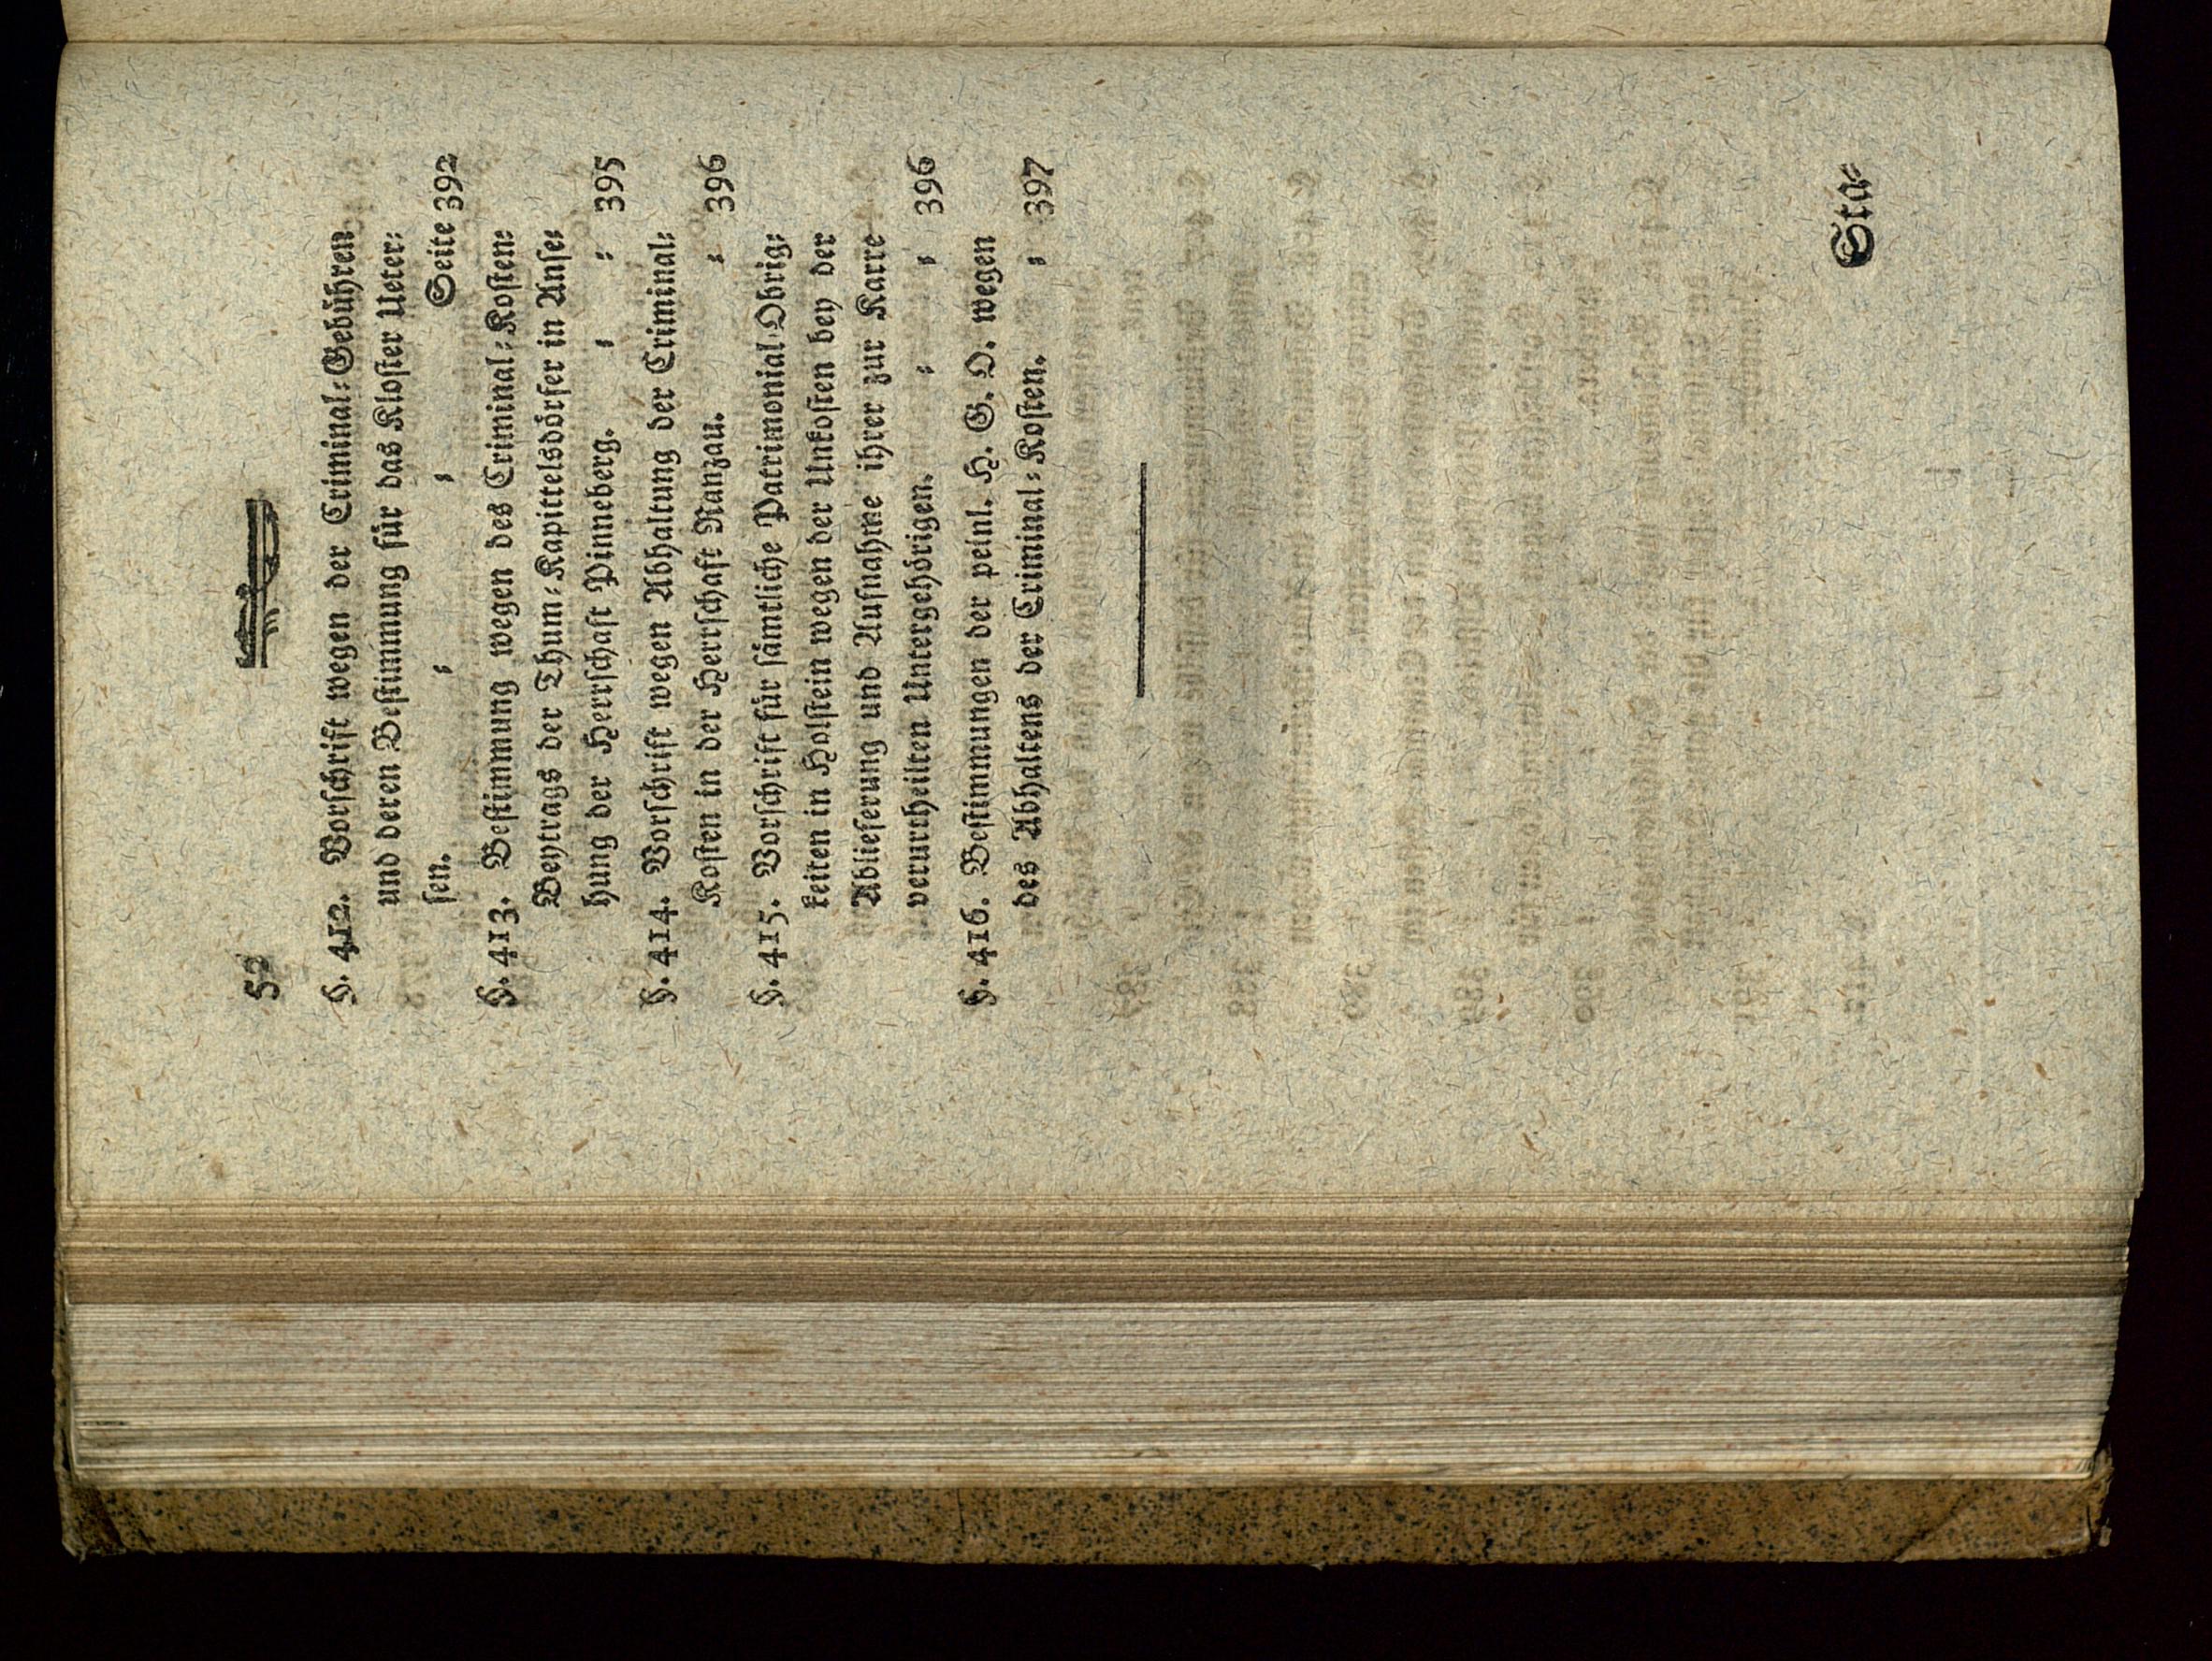 52
§. 412. Vorschrift wegen der Criminal⸗Gebühren
und deren Bestimmung für das Kloster Ueter⸗
sen. ⸗ ⸗ Seite 392
§. 413. Bestimmung wegen des Criminal⸗Kosten⸗
Beytrags der Thum⸗Kapittelsdörfer in Anse⸗
hung der Herrschaft Pinneberg. ⸗ ⸗ 395
§. 414. Vorschrift wegen Abhaltung der Criminal⸗
Kosten in der Herrschaft Ranzau. ⸗ 396
§. 415. Vorschrift für sämtliche Patrimonial⸗Obrig⸗
keiten in Holstein wegen der Unkosten bey der
Ablieferung und Aufnahme ihrer zur Karre
verurtheilten Untergehörigen. ⸗ ⸗ 396
§. 416. Bestimmungen der peinl. H. G. O. wegen
des Abhaltens der Criminal⸗Kosten. ⸗ 397
Sta⸗